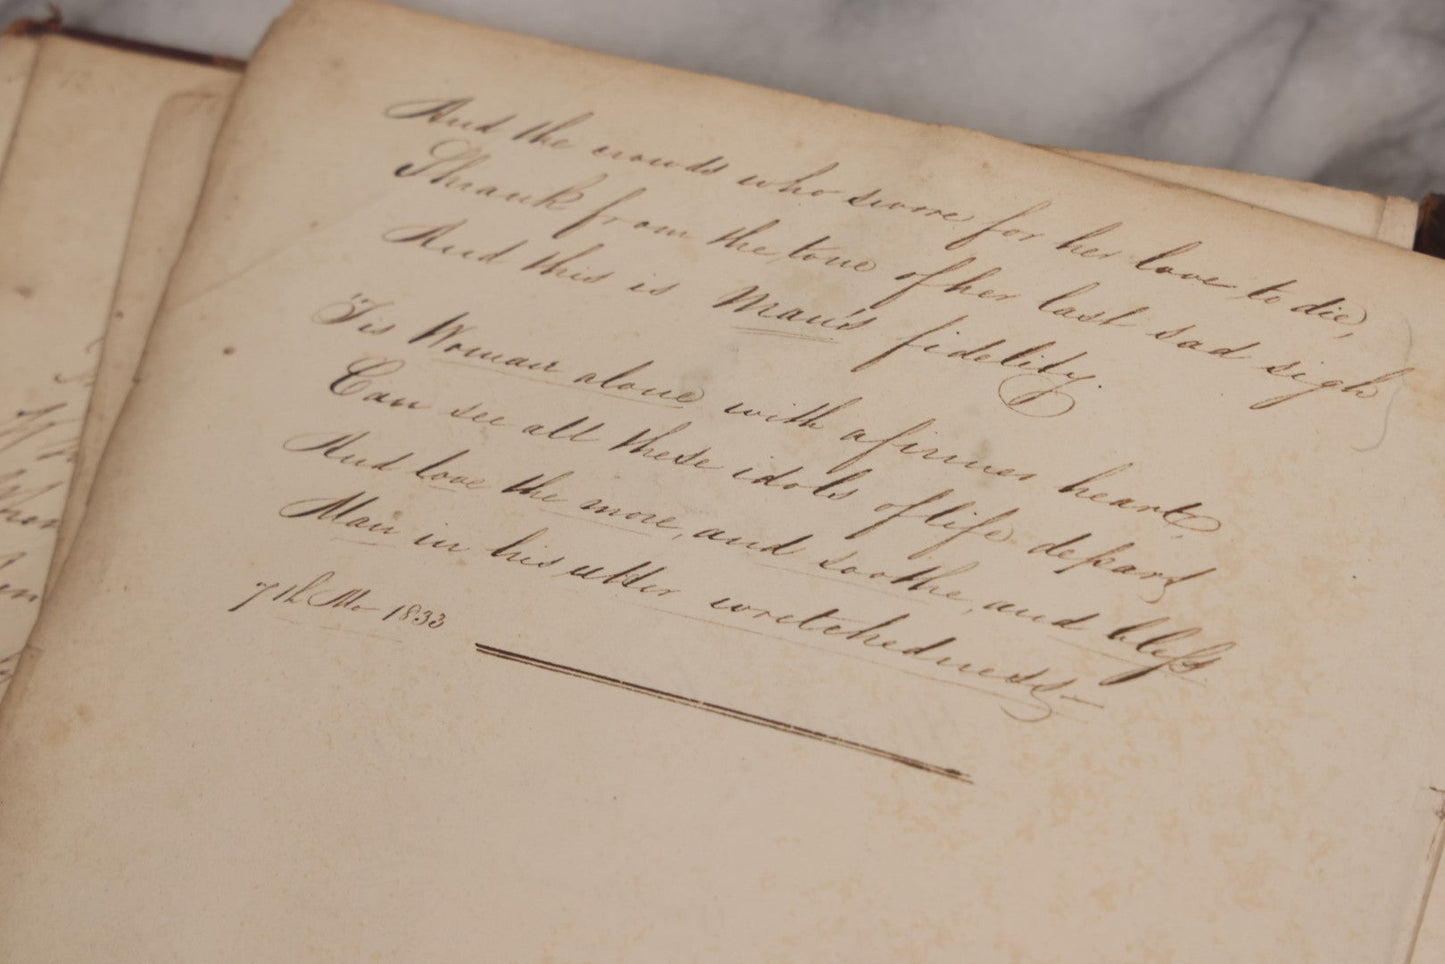 And the crowds who swore for her love to die,
Shrank from the tone of her last sad sigh
And this is Man's fidelity.
'Tis Woman alone with a firmer heart,
Can see all these idols of life depart
And love the more, and soothe, and bless
Man in his utter wretchedness—
7th Mo 1833